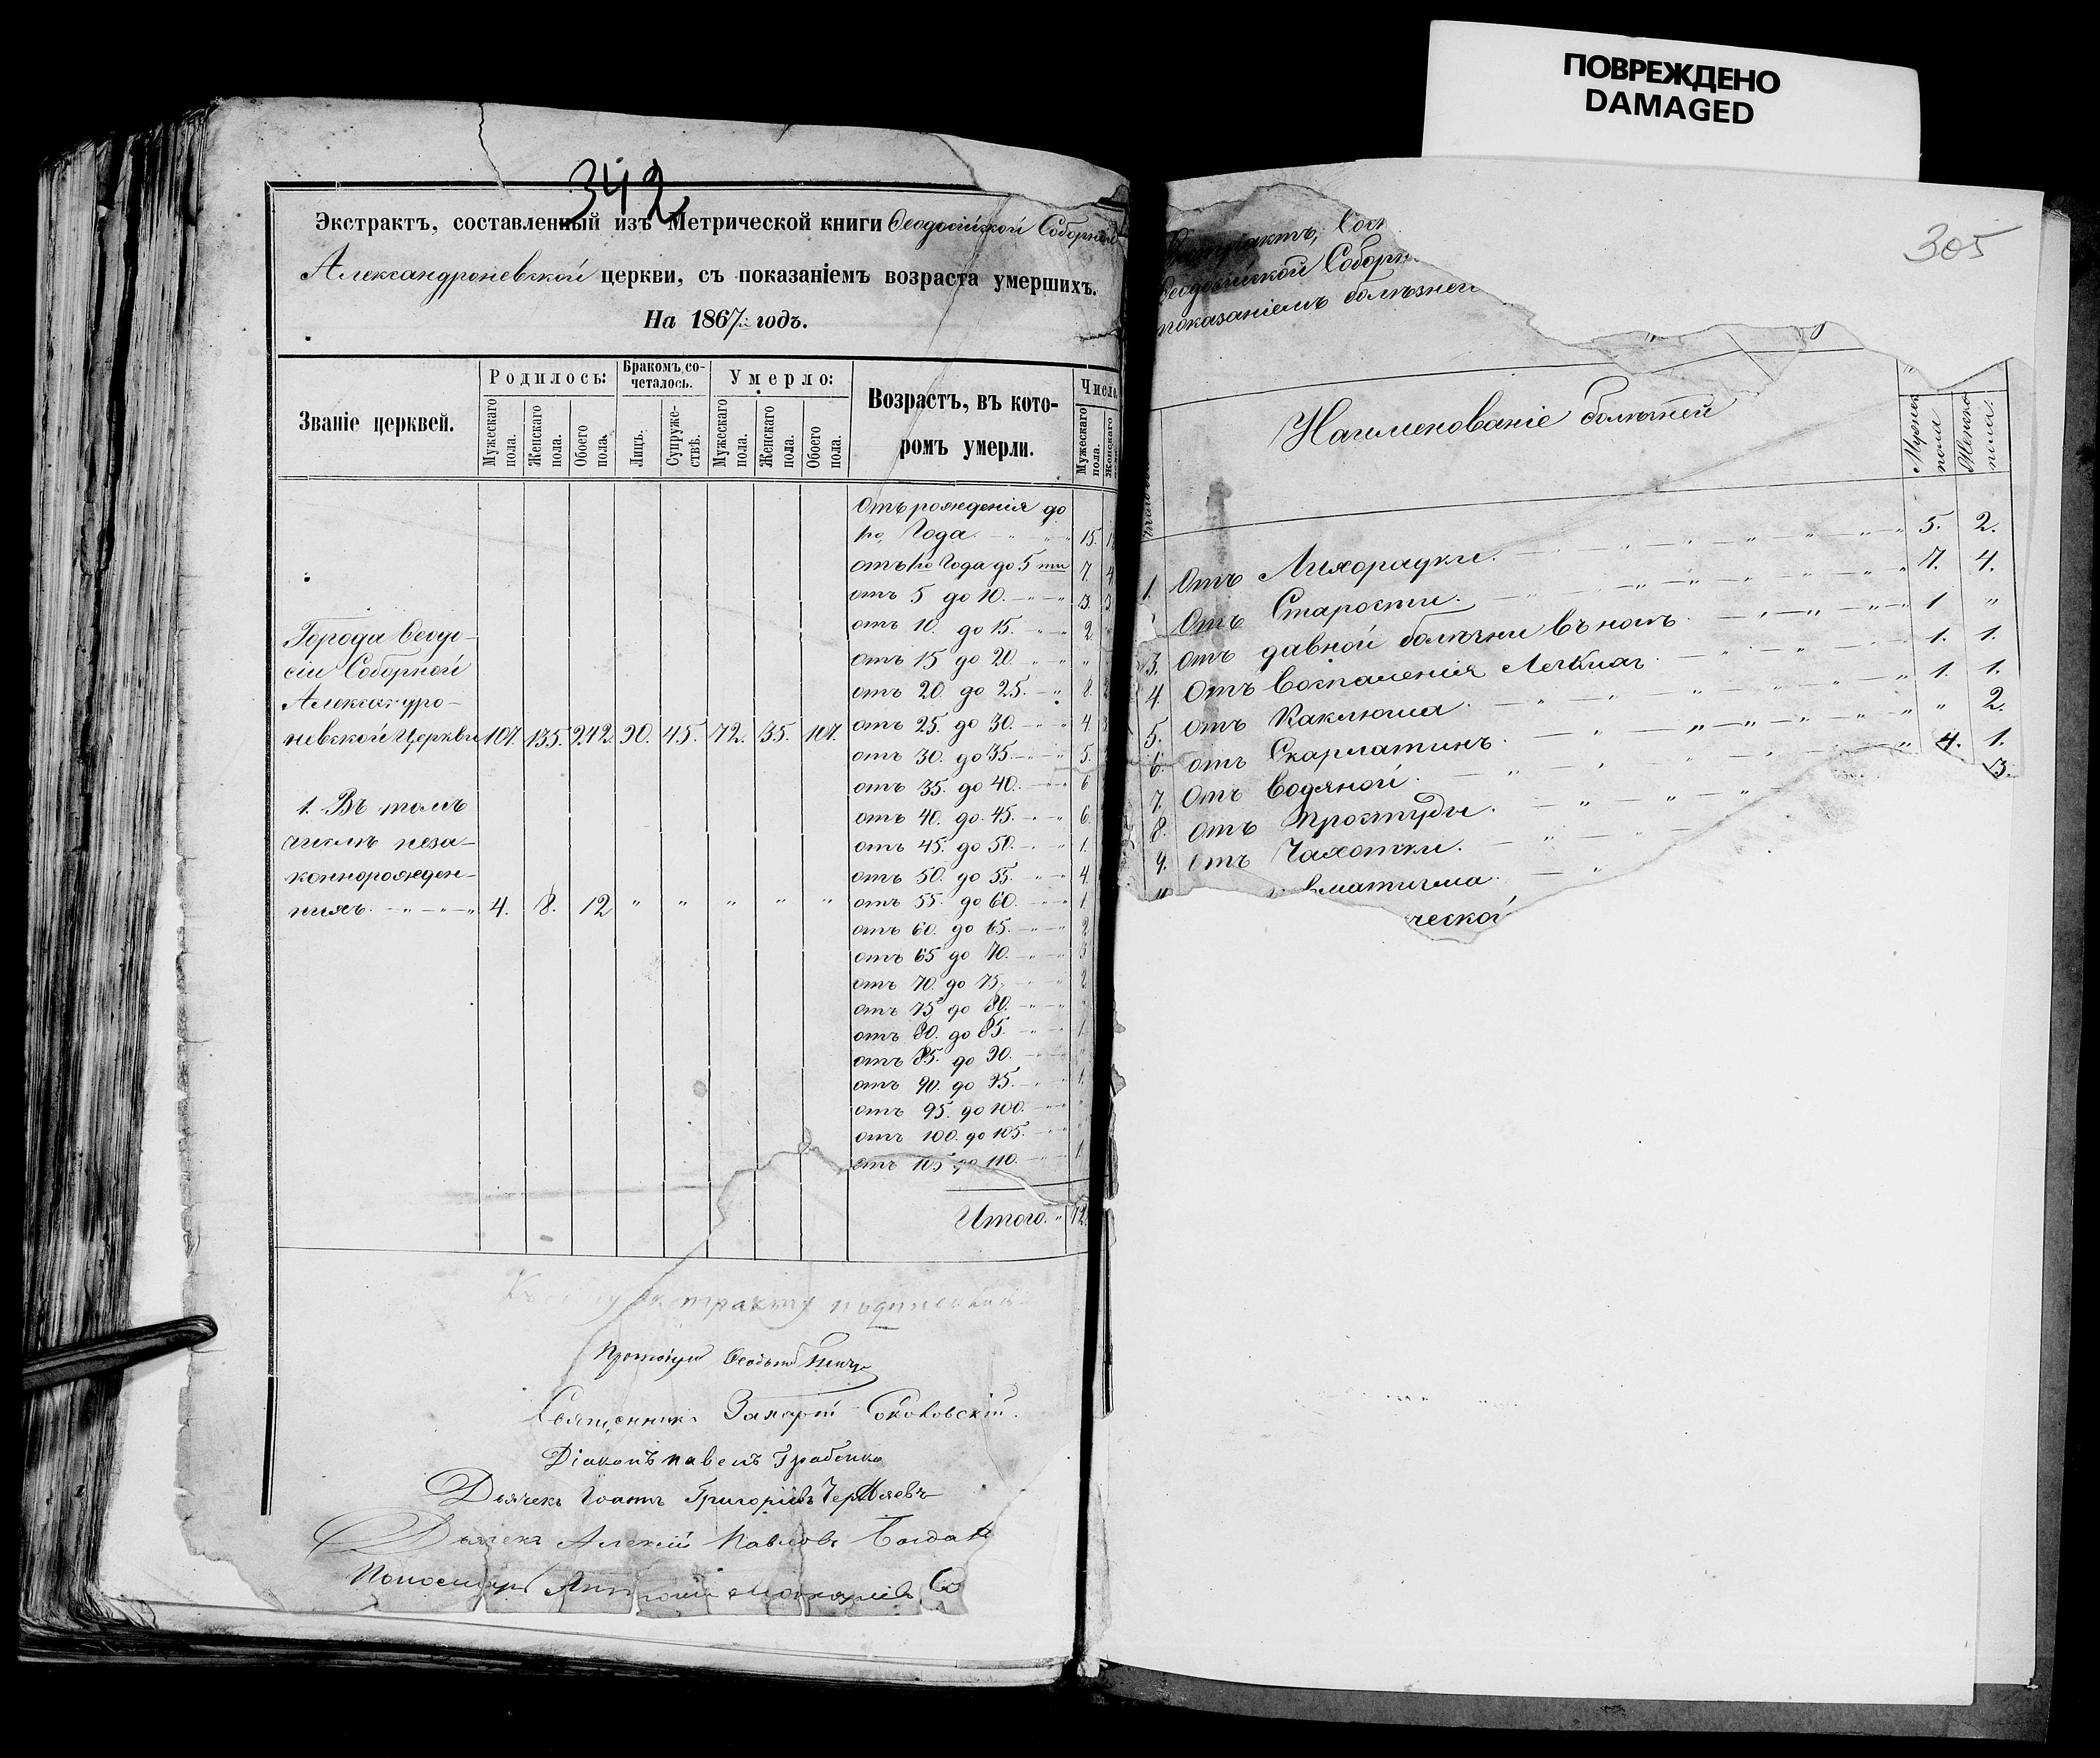 ПОВРЕЖДЕНО
DAMAGED
342
Экстрактъ, составленный изъ Метрической книги Ѳеодосійской Соборной
Александроневской церкви, съ показаніемъ возраста умершихъ.
На 1867й годъ.
Званіе церквей.
Родилось:
Бракомъ со-
четалось.
Умерло:
Возрастъ, въ кото-
ромъ умерли.
Число
Мужескаго пола.
Женскаго пола.
Обоего пола.
Лицъ.
Супруже-
ствъ.
Мужескаго пола.
Женскаго пола.
Обоего пола.
Мужескаго пола.
Женскаго
Отъ рожденія до
1го Года 15.
отъ 1го Года до 5 ти 7. 4
отъ 5 до 10. 3. 3
отъ 10. до 15. 2
отъ 15 до 20. "
отъ 20. до 25. 8. 2
отъ 25. до 30. 4 3
отъ 30. до 35. 5.
отъ 35. до 40. 6
отъ 40. до 45. 6
отъ 45. до 50. 1.
отъ 50. до 55. 4.
отъ 55. до 60. 1
отъ 60. до 65. 2
отъ 65 до 70. 3
отъ 70. до 75. 2
отъ 75 до 80. "
отъ 80. до 85. 1
отъ 85. до 90. "
отъ 90. до 95. 1.
отъ 95. до 100. "
отъ 100. до 105. "
отъ 105 до 110. 1
Итого. 72.
Города Ѳеодо-
сіи Соборной
Александро-
невской Церкви 107. 135. 242. 90. 45. 72. 35. 107.
1. Въ томъ
числѣ неза-
коннорожден-
ныхъ. 4. 8. 12 " " " " "
Къ сему экстракту подписались
Протоіерей
Священникъ Захарій Соколовскій.
Діаконъ Павелъ Грабенко
Дьячекъ Іоаннъ Григоріевъ Черняевъ
Дьячекъ Алексій Павловъ
Пономарь
305
Экстрактъ, Сост
Ѳеодосійской Соборн
показаніемъ болѣзней
Наименованіе болѣзней
Мужеск
пола
Женско
пола.
1. Отъ Лихорадки. 5. 2.
Отъ Старости. 7. 4.
3. Отъ давной болѣзни въ ногѣ. 1 "
4. Отъ воспаленія Легкихъ. 1. 1.
5. отъ Каклюша. 1. 1.
6. отъ Скарлатинъ. " 2.
7. Отъ водяной. 4. 1.
8. отъ Простуды. 3.
9. отъ Чахотки.
вматизма.
ческой